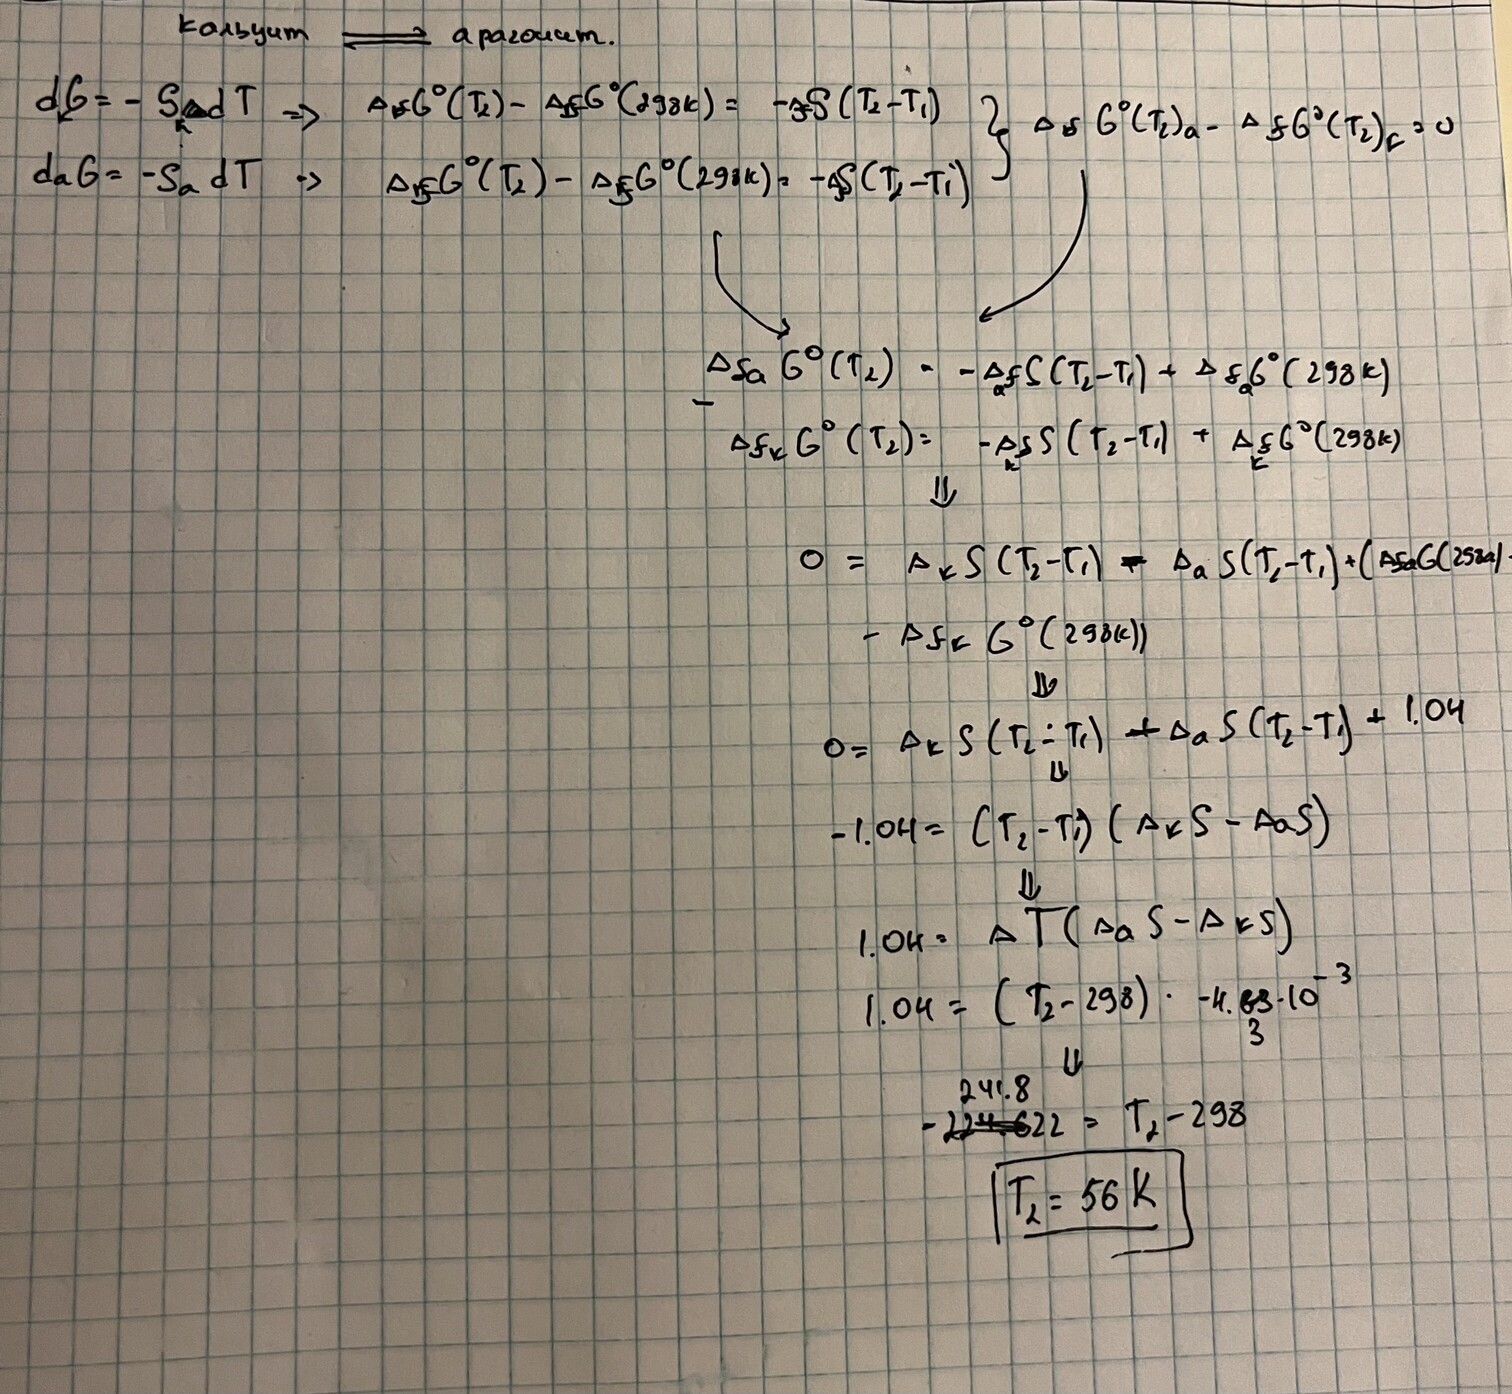 кальцит ⇌ арагонит.
dG = - S_к dT => Δ_fG°(T₂) - Δ_fG°(298K) = -Δ_fS(T₂-T₁) } Δ_f G°(T₂)_a - Δ_fG°(T₂)_к = 0
d_aG = -S_a dT => Δ_fG°(T₂) - Δ_fG°(298K) = -Δ_fS(T₂-T₁)
Δ_fa G°(T₂) = -Δ_afS(T₂-T₁) + Δ_faG°(298K)
-
Δ_fк G°(T₂) = -Δ_кfS(T₂-T₁) + Δ_кfG°(298K)
⇓
0 = Δ_к S(T₂-T₁) - Δ_a S(T₂-T₁) + (Δ_faG(298к) -
- Δ_fк G°(298K))
⇓
0 = Δ_к S(T₂-T₁) - Δ_a S(T₂-T₁) + 1.04
⇓
-1.04 = (T₂-T₁)(Δ_кS - Δ_aS)
⇓
1.04 = ΔT(Δ_aS - Δ_кS)
1.04 = (T₂-298) · -4.3·10⁻³
⇓
-241.8 = T₂-298
T₂ = 56 K